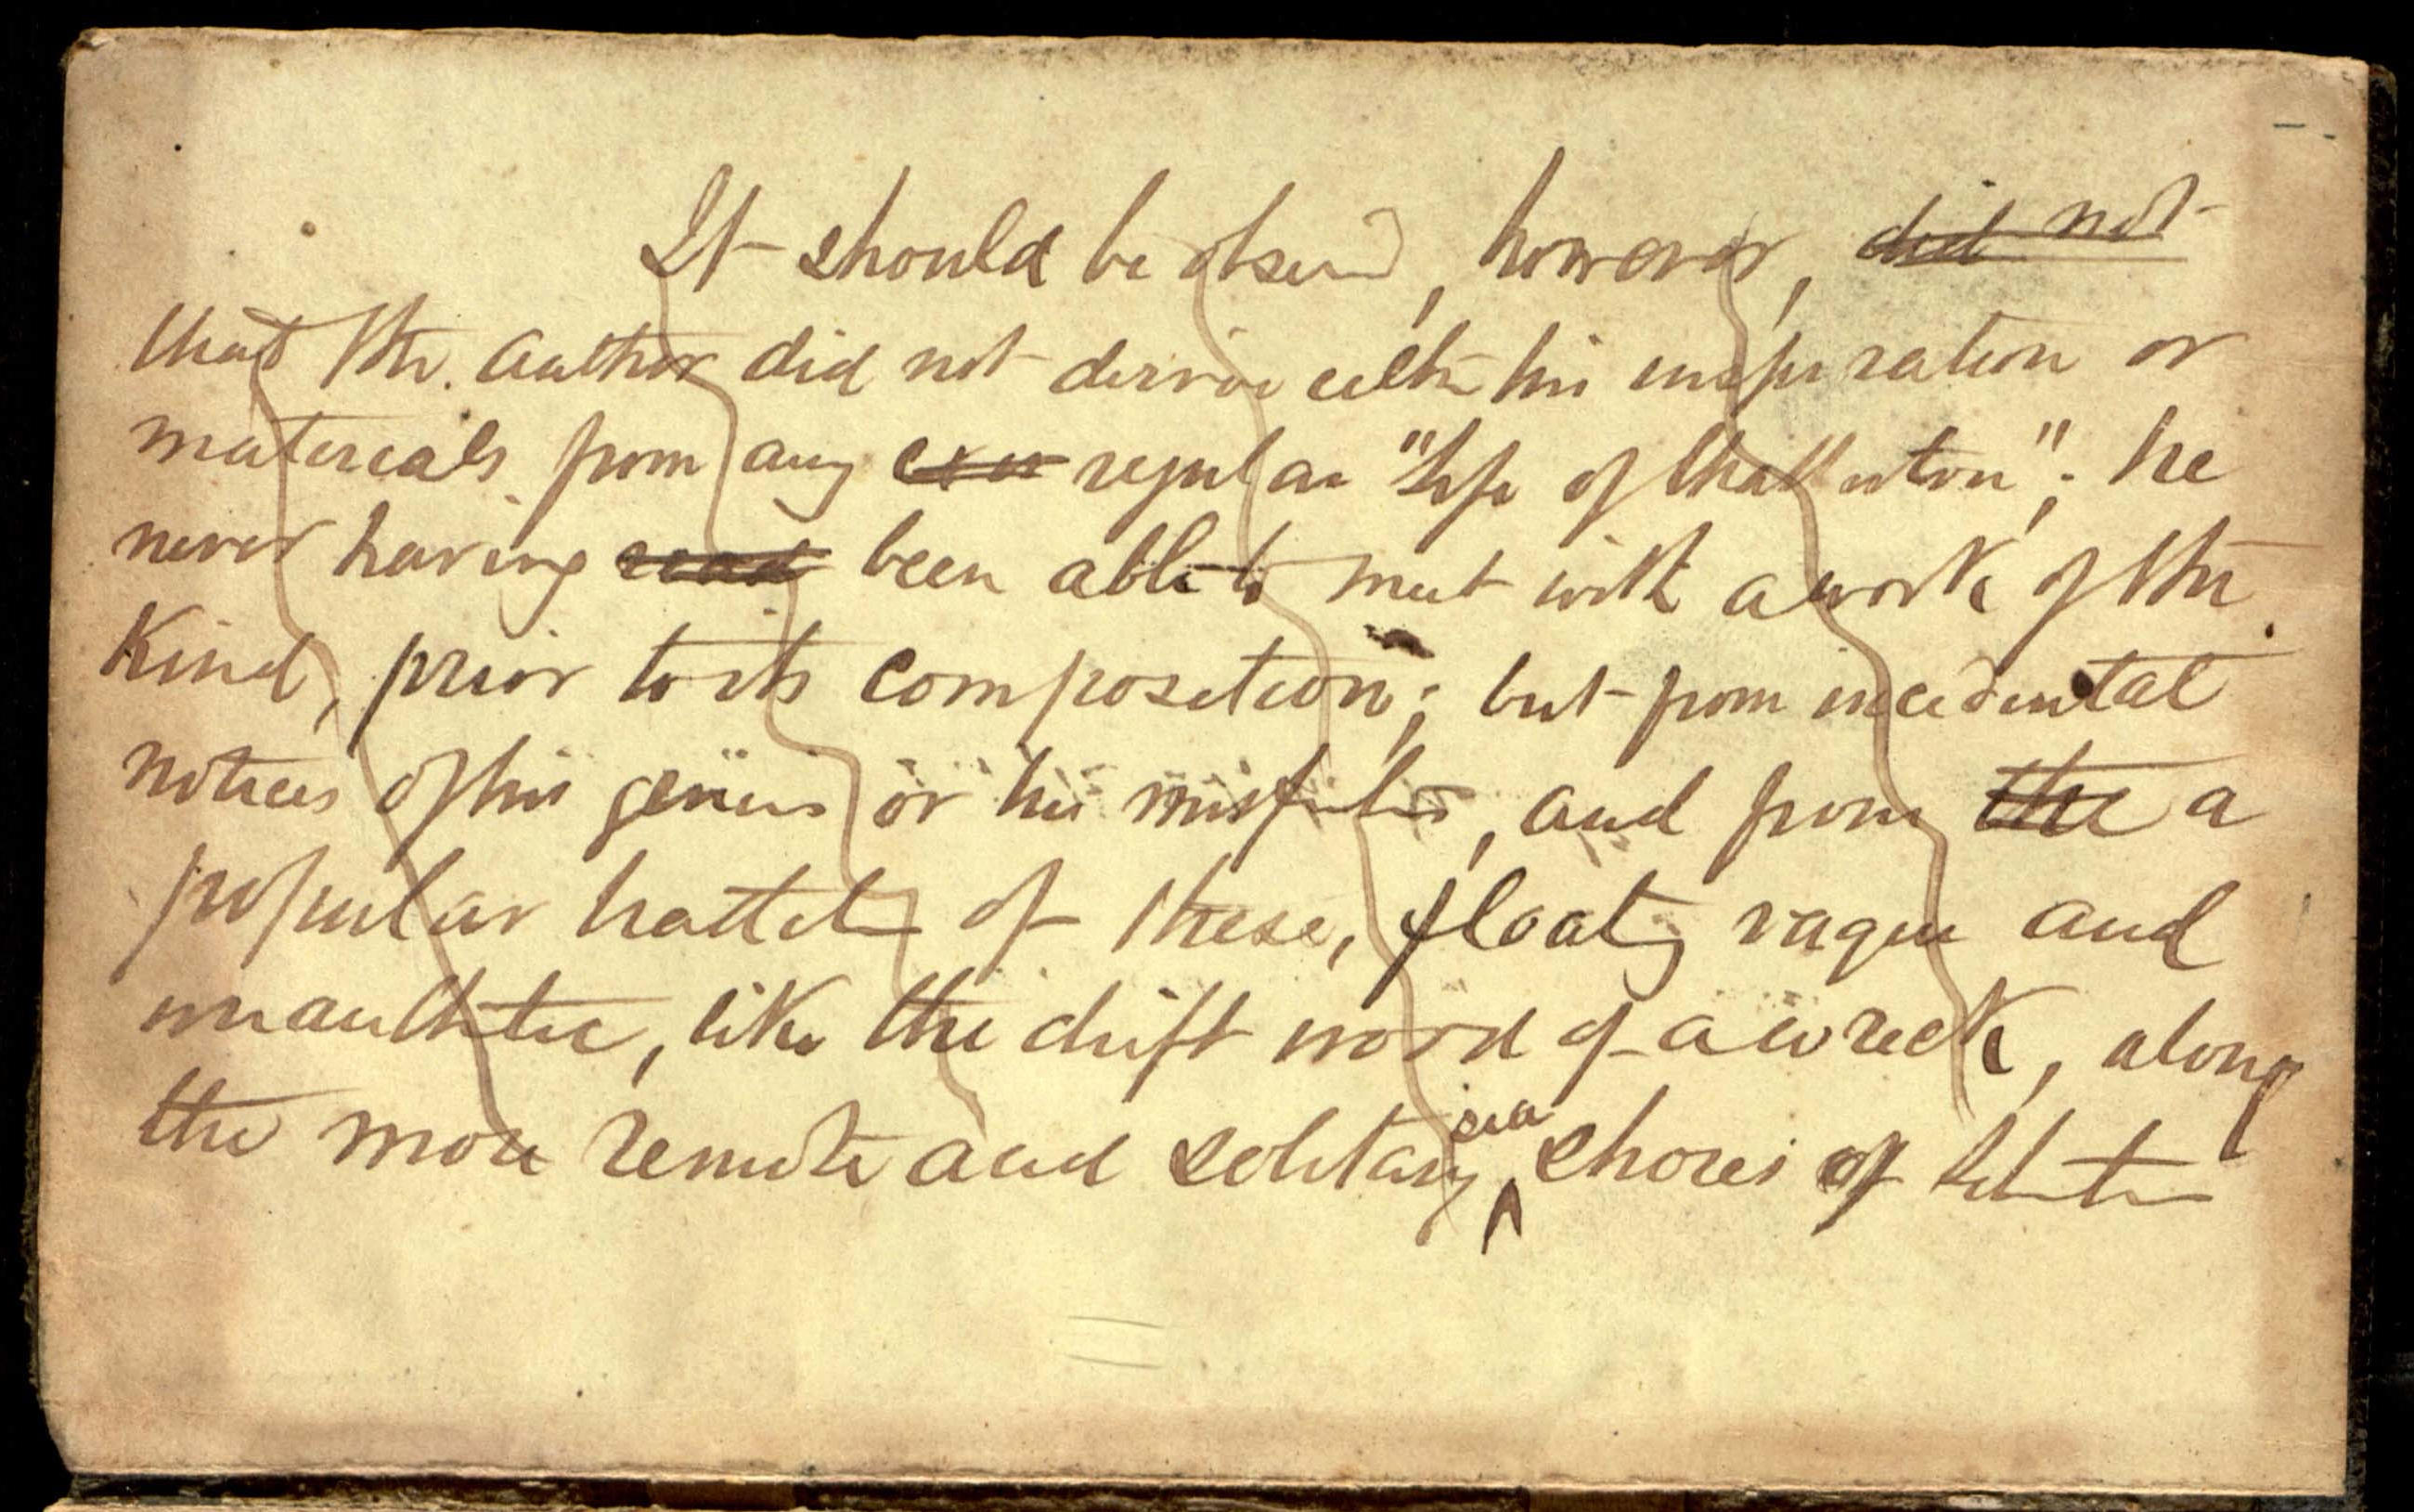 It should be observed, however, did not
that the author did not derive either his inspiration or
materials from any regular "Life of Chatterton"; he
never having read been able to meet with a work of the
Kind, prior to its composition; but from incidental
notices of his genius or his misfortunes, and from the a
popular of these, floating vague and
unauthentic, like the drift wood of a wreck, along
the more remote and solitary sea shores of